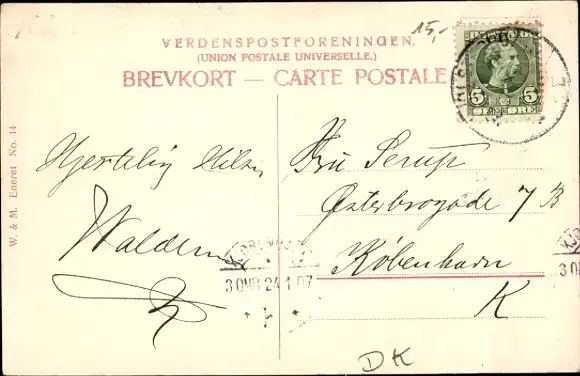 15,-
VERDENSPOSTFORENINGEN.
(UNION POSTALE UNIVERSELLE.)
BREVKORT — CARTE POSTALE
5 5
ØRE
W. & M. Eneret No. 14
Hjertelig Hilsen
Waldemar
Fru Serup
Østerbrogade 7 B
København
K
KJØBENHAVN
24 1 07
KJØ
DK